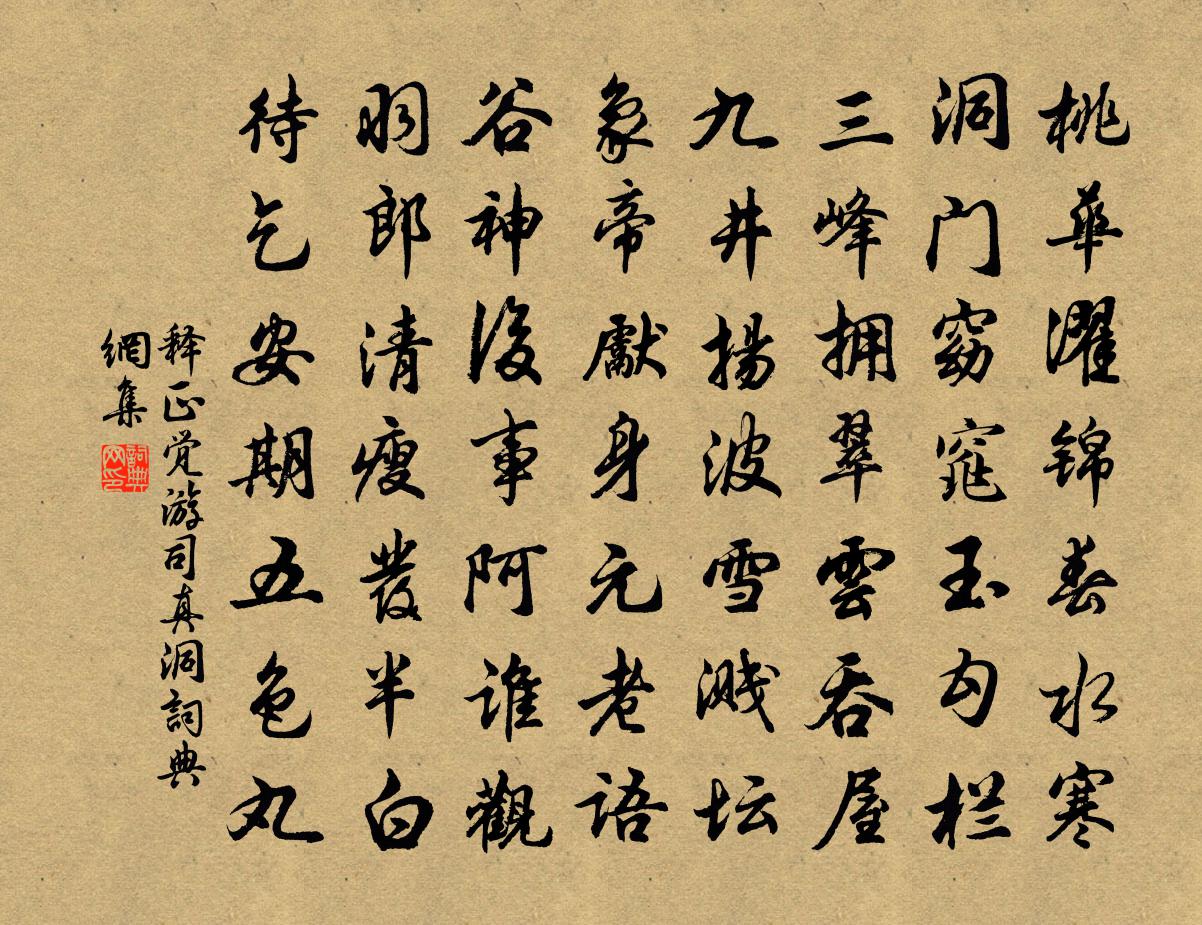 桃華濯锦春水寒
洞门窈窕玉勾栏
三峰拥翠雲吞屋
九井揚波雪溅坛
象帝獻身元老语
谷神後事阿谁觀
羽郎清瘦发半白
待乞安期五色丸
释正觉游司真洞詞典
網集
詞典网印